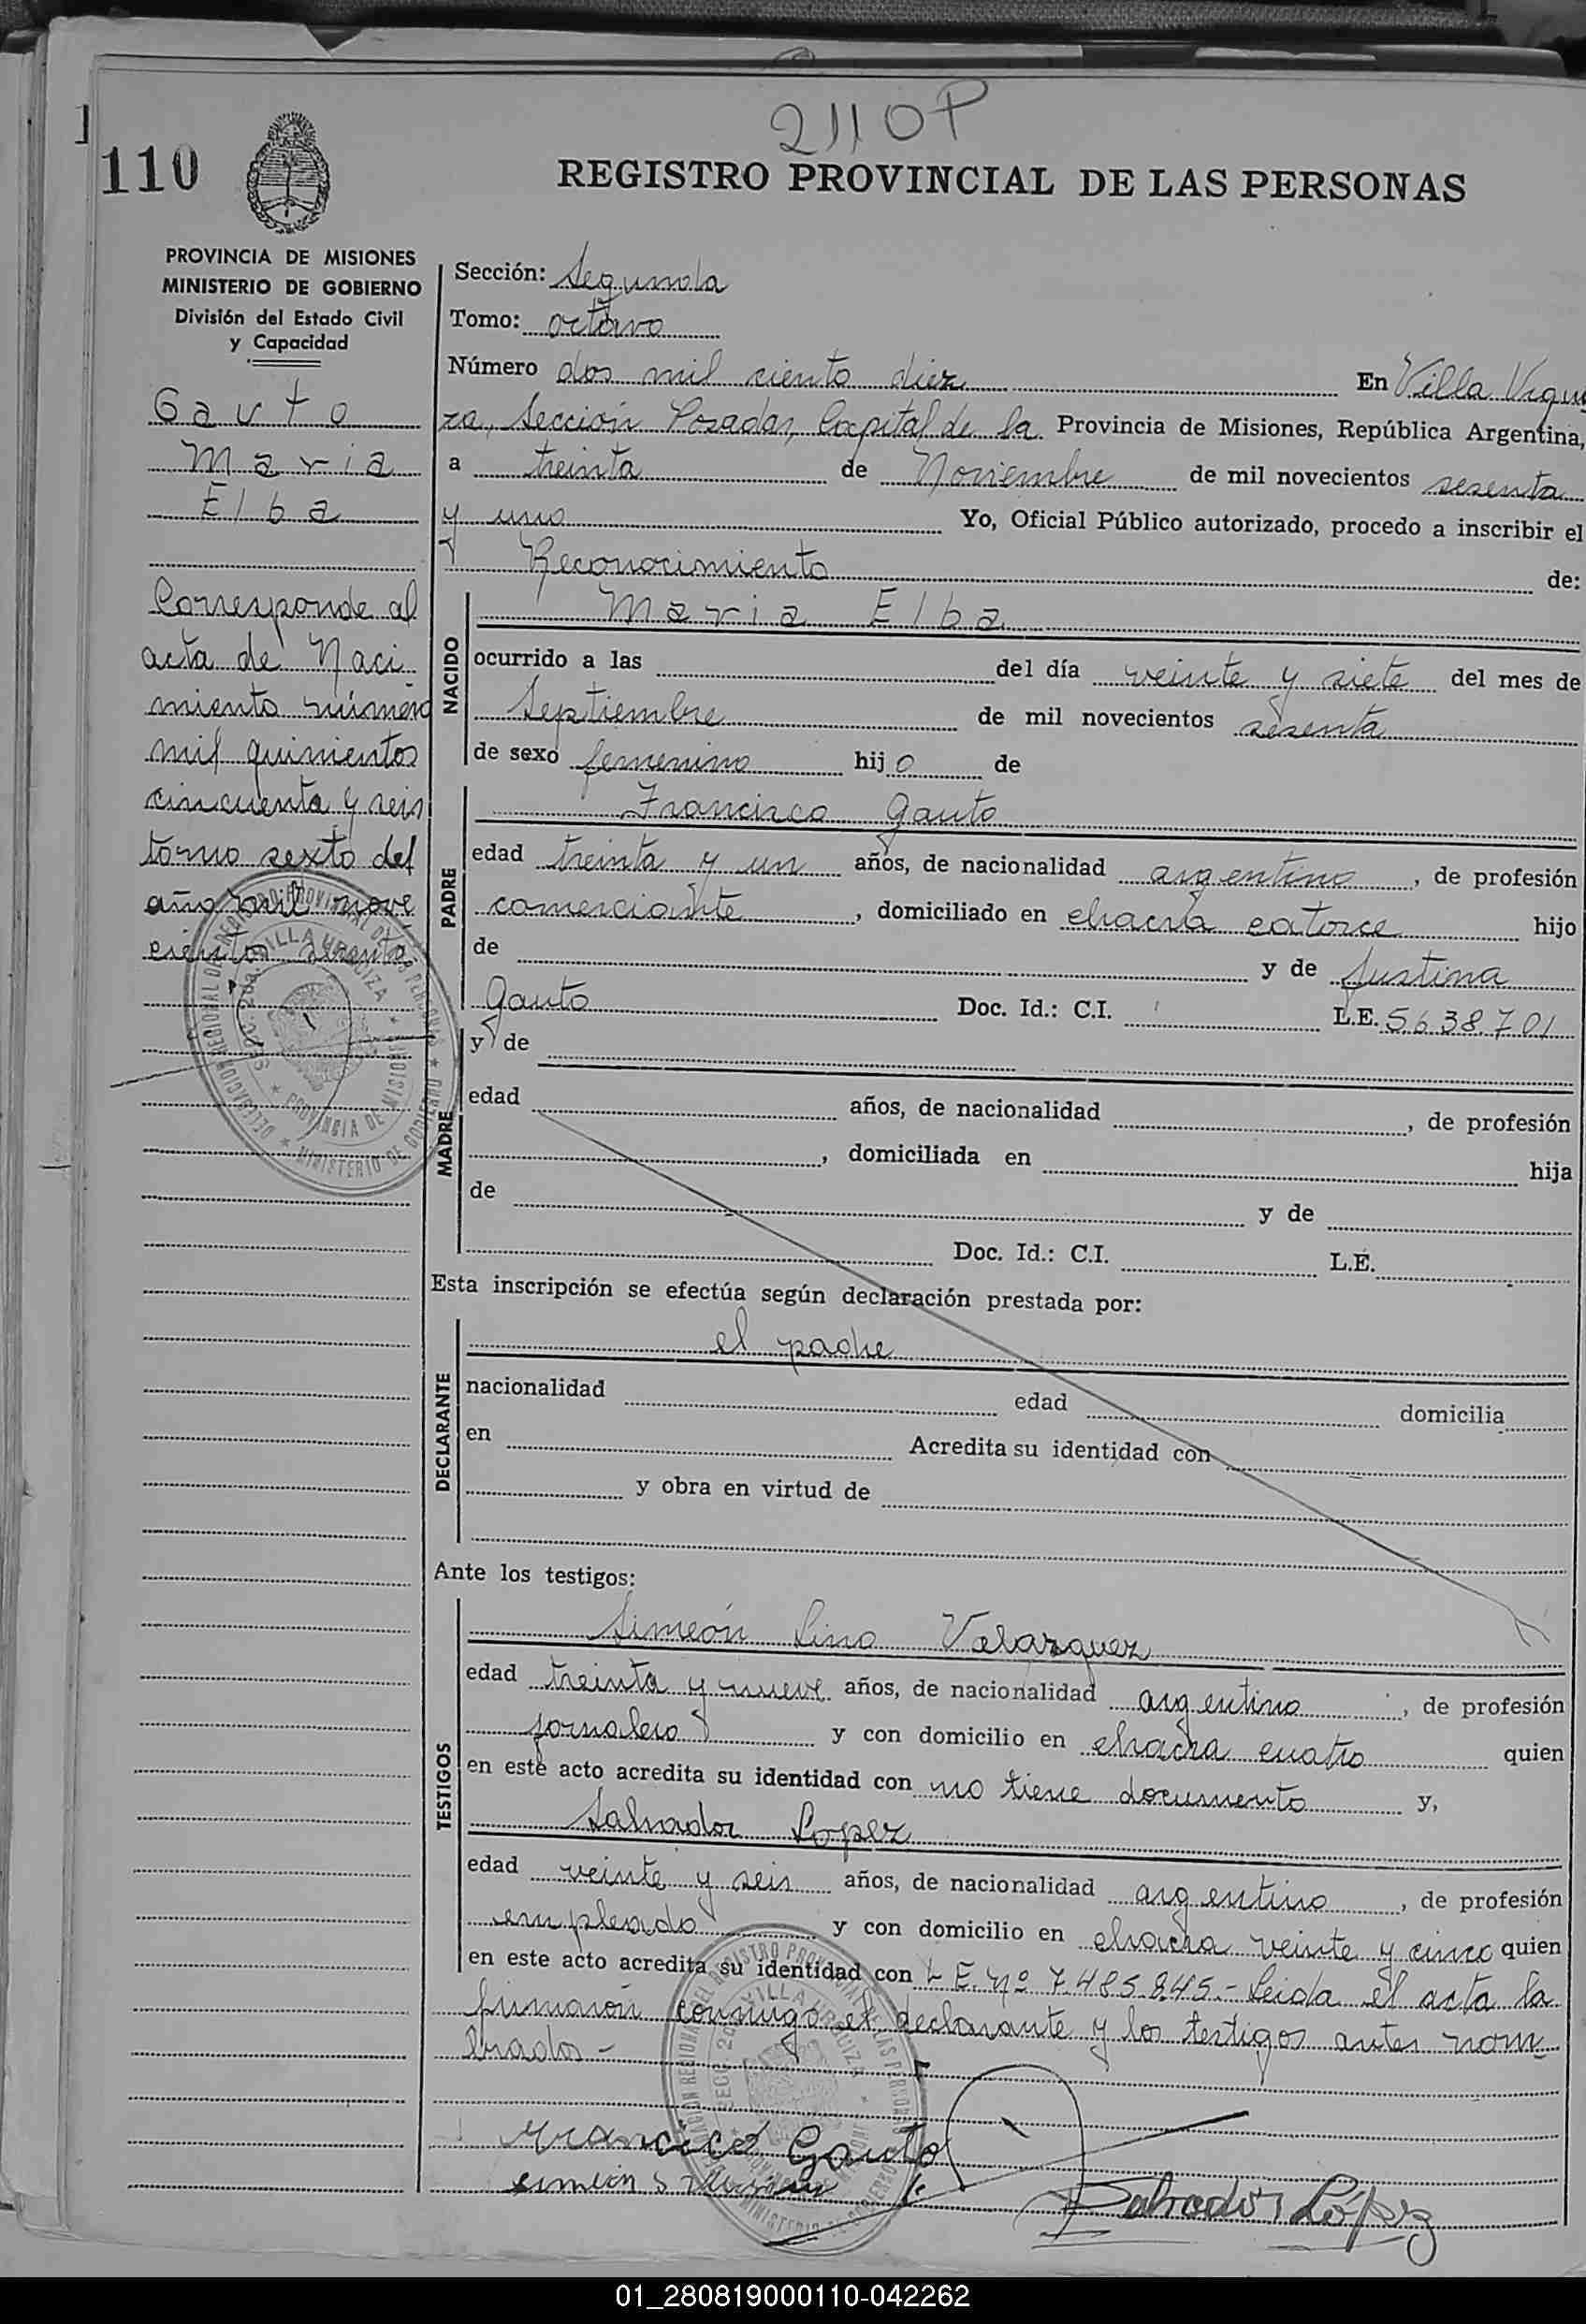 2110P
110
REGISTRO PROVINCIAL DE LAS PERSONAS
PROVINCIA DE MISIONES
MINISTERIO DE GOBIERNO
División del Estado Civil
y Capacidad
Gauto
Maria
Elba
Corresponde al
acta de Naci
miento número
mil quinientos
cincuenta y seis
tomo sexto del
año mil nove
cientos sesenta
Sección: Segunda
Tomo: octavo
Número dos mil ciento diez En Villa Urqui
za, Sección Posadas, Capital de la Provincia de Misiones, República Argentina,
a treinta de Noviembre de mil novecientos sesenta
y uno Yo, Oficial Público autorizado, procedo a inscribir el
Reconocimiento de:
NACIDO
Maria Elba
ocurrido a las del día veinte y siete del mes de
Septiembre de mil novecientos sesenta
de sexo femenino hijo de
PADRE
Francisco Gauto
edad treinta y un años, de nacionalidad argentino, de profesión
comerciante, domiciliado en chacra catorce hijo
de y de Justina
Gauto Doc. Id.: C.I. L.E. 5.638.701
MADRE
y de
edad años, de nacionalidad , de profesión
, domiciliada en hija
de y de
Doc. Id.: C.I. L.E.
Esta inscripción se efectúa según declaración prestada por:
DECLARANTE
el padre
nacionalidad edad domicilia
en Acredita su identidad con
y obra en virtud de
Ante los testigos:
TESTIGOS
Simeón Lino Velazquez
edad treinta y nueve años, de nacionalidad argentino, de profesión
jornalero y con domicilio en chacra cuatro quien
en este acto acredita su identidad con no tiene documento y,
Salvador Lopez
edad veinte y seis años, de nacionalidad argentino, de profesión
empleado y con domicilio en chacra veinte y cinco quien
en este acto acredita su identidad con L E. nº 7.485.845.- Leida el acta la
firmaron conmigo el declarante y los testigos antes nom
brados-
Francico Gauto
simeón
Salvador López
01_280819000110-042262